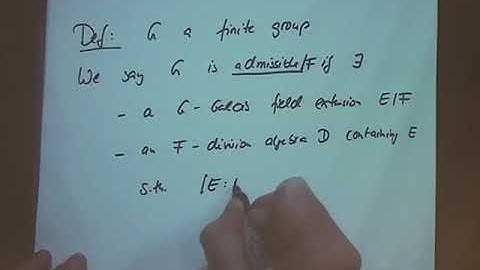 Def: G a finite group
We say G is admissible/F if ∃
- a G-Galois field extension E/F
- an F-division algebra D containing E
s.th. |E: